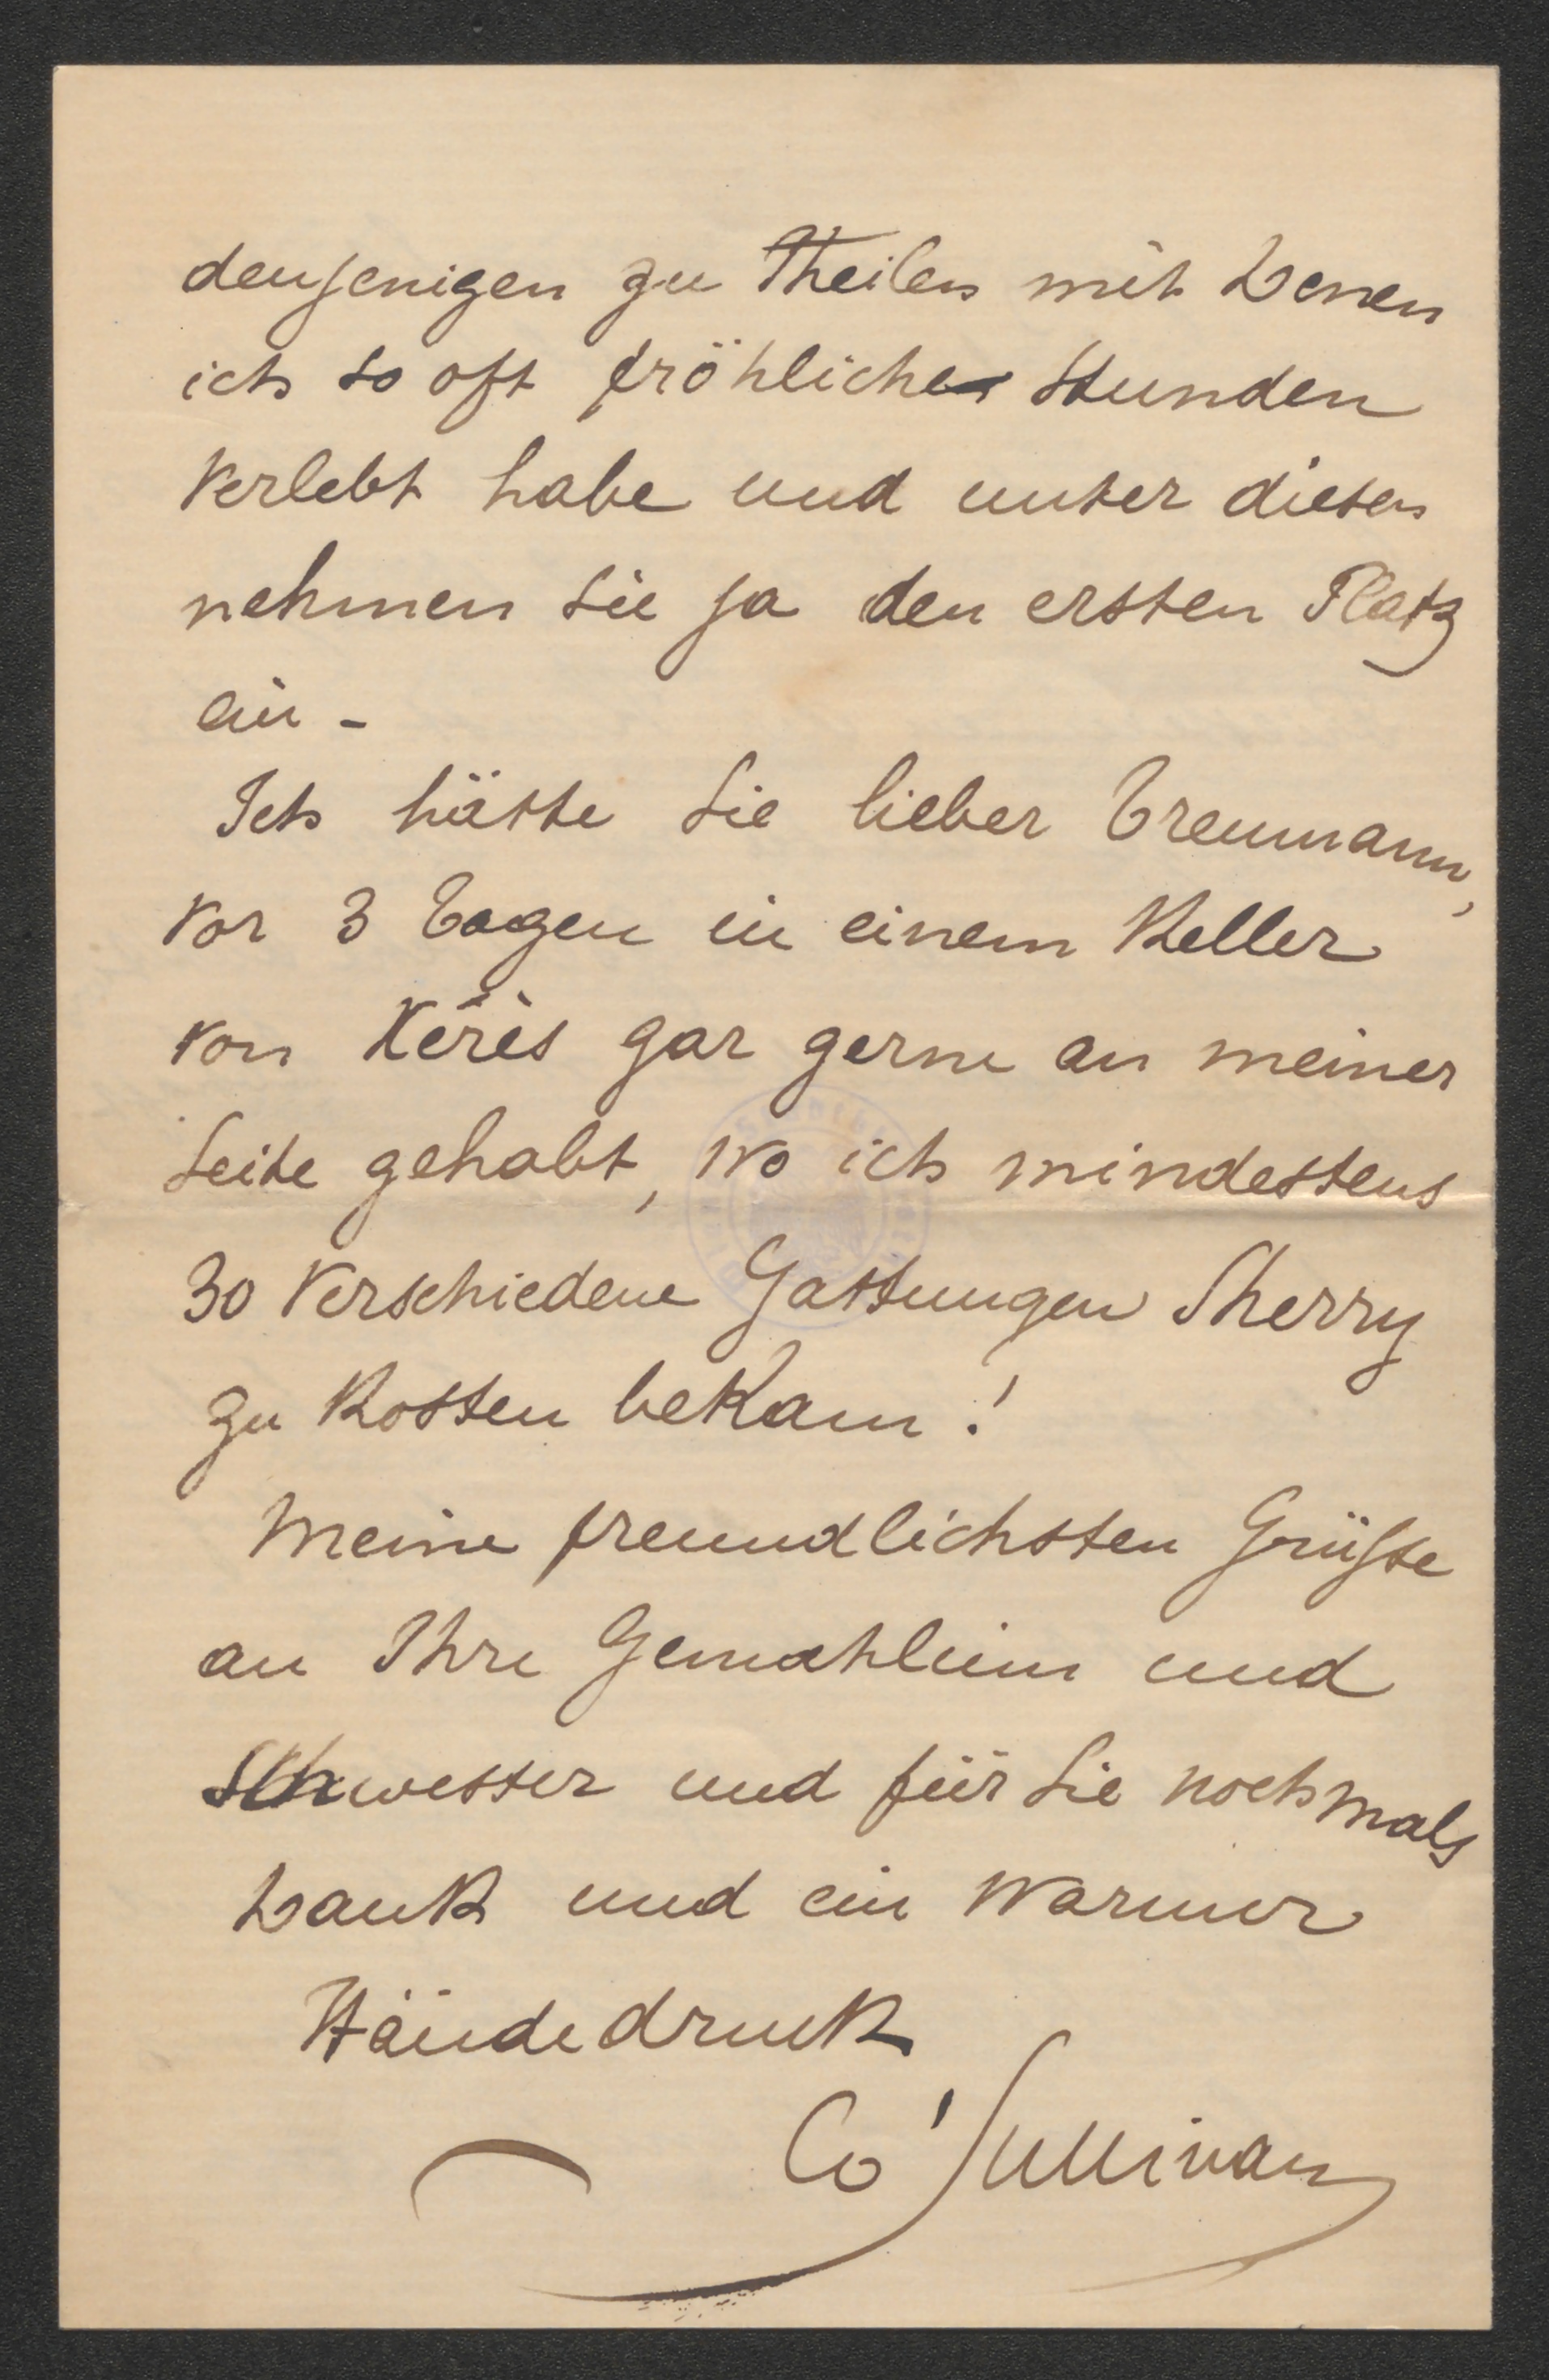 denjenigen zu Theilen mit Denen
ich so oft fröhliche Stunden
verlebt habe und unter diesen
nehmen Sie ja den ersten Platz
ein -
Ich hätte Sie lieber Treumann,
vor 3 Tagen in einem Keller
von Xérès gar gerne an meiner
Seite gehabt, wo ich mindestens
30 Verschiedene Gattungen Sherry
zu Kosten beKam!
Meine freundlichsten Grüße
an Ihre Gemahlinn und
Schwester und für Sie nochmals
Dank und ein Warmer
Händedruck
CO'Sullivan